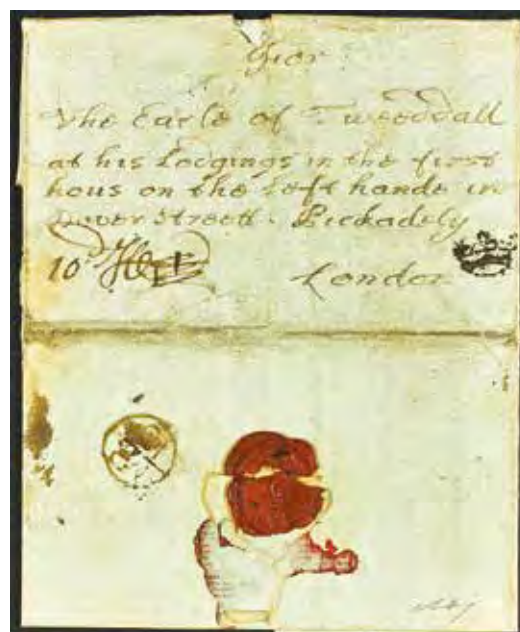 ffor
The Earle of Tweeddall
at his Lodgings in the first
hous on the left hande in
Dover Streett. Pickadely
10d
London